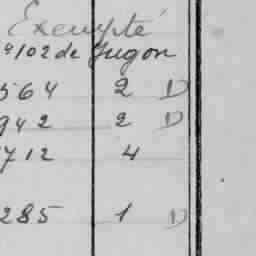 Exempté
102 de Jugon
564 2 D
942 2 D
712 4
285 1 D